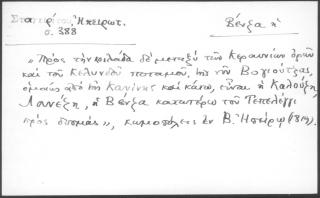 α. ρ. Ἠπειρωτ. Βένζα ἡ
σ. 388
„Πρὸς τὴν κοιλάδα δὲ μεταξὺ τῶν Κεραυνίων ὀρῶν
καὶ τοῦ Κελυνδοῦ ποταμοῦ, ἐπὶ τὴν Βογιούτζας,
ὀμοίως ἀπὸ τῆς Κανίνης καὶ κάτω, εἶναι ἡ Καλούζη,
Λοννέζη, ἡ Βένζα κατωτέρω τοῦ Τεπελένι
πρὸς δυσμάς", κωμοπόλεις ἐν Β. Ἠπείρῳ (1819).